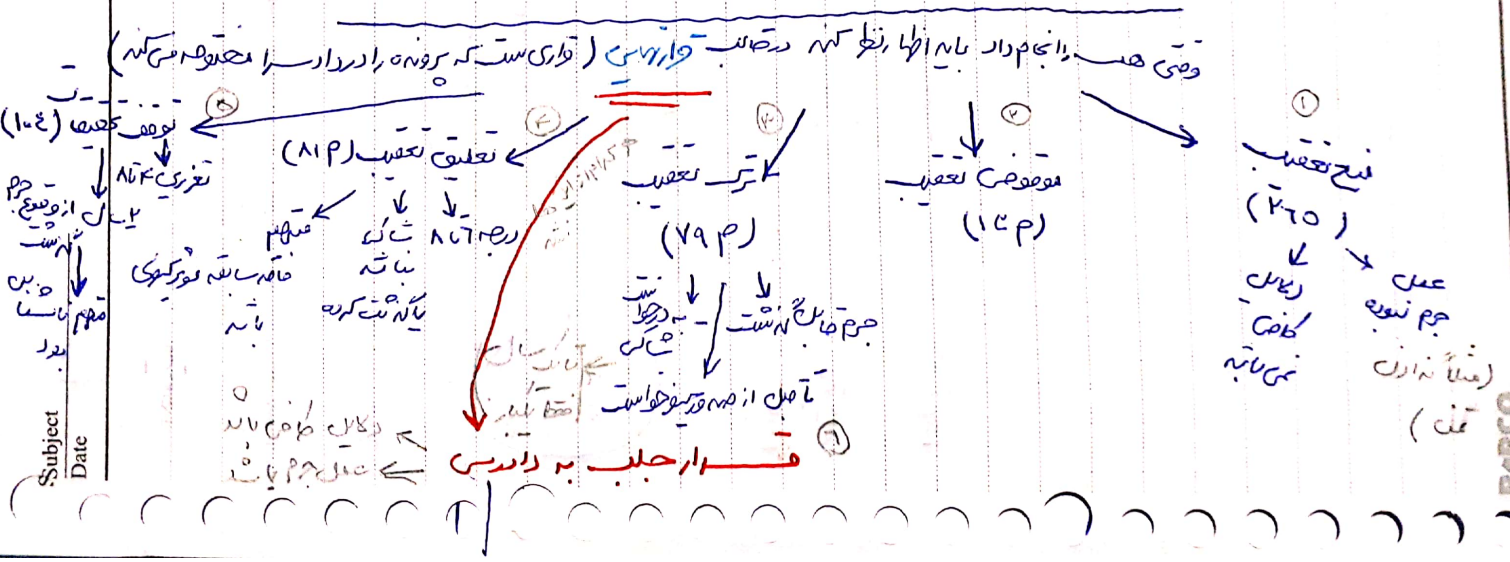 وقتی همه را انجام داد باید اظهارنظر کند در قالب قرار نهایی (قراری ست که پرونده را در دادسرا مختومه می‌کند)
①
منع تعقیب
(م ۲۶۵)
عمل جرم نبوده
(مثلاً ندادن
دلایل کافی نمی باشد
②
موقوفی تعقیب
(م ۱۳)
③
ترک تعقیب
(م ۷۹)
جرم قابل گذشت
به درخواست شاکی
تا قبل از صدور کیفرخواست
تا یک سال
فقط یکبار
④
تعلیق تعقیب (م ۸۱)
درجه ۶ تا ۸
شاکی نباشد یا گذشت کرده
متهم فاقد سابقه مؤثر کیفری باشد
⑤
توقف تحقیقات (۱۰۴)
تعزیری ۴ تا ۸
۲ سال از وقوع جرم گذشت
متهم ناشناس بود
⑥
قرار جلب به دادرسی
دلایل کافی باشد
عمل جرم باشد
Subject:
Date